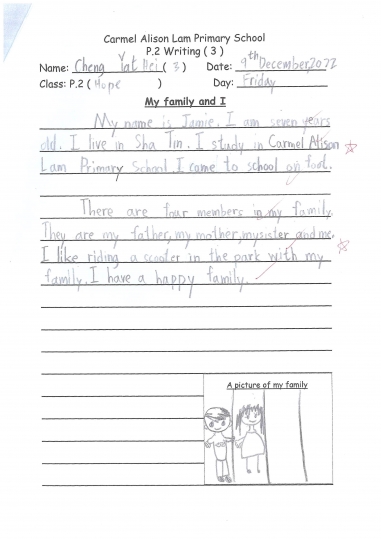 Carmel Alison Lam Primary School
P.2 Writing ( 3 )
Name: Cheng Yat Hei ( 3 ) Date: 9th December, 2022
Class: P.2 ( Hope ) Day: Friday
My family and I
My name is Jamie. I am seven years
old. I live in Sha Tin. I study in Carmel Alison
Lam Primary School. I come to school on foot.
There are four members in my family.
They are my father, my mother, my sister and me.
I like riding a scooter in the park with my
family. I have a happy family.
A picture of my family